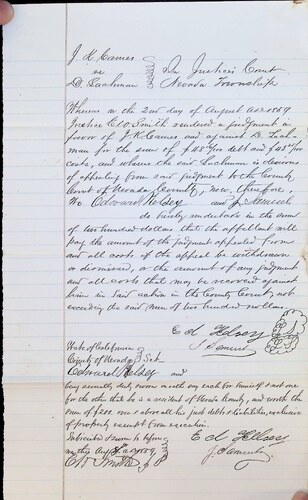 J. K. Eames
vs In Justices Court
D. Lachman Nevada Township
Whereas on the 2nd day of August A.D. 1869
Justice E. O. Smith rendered a judgment in
favor of J. K. Eames and against D. Lach-
man for the sum of $ for debt and for
costs, and where the said Lachman is desirous
of appealing from said judgment to the County
Court of Nevada County, now, therefore,
We Edward Kelsey and J.
do hereby undertake in the sum
of two hundred dollars that the appellant will
pay the amount of the judgment appealed from
and all costs if the appeal be withdrawn
or dismissed, or the amount of any judgment
and all costs that may be recovered against
him in said action in the County Court, not
exceeding the said sum of two hundred dollars
Ed Kelsey
J.
State of California
County of Nevada Sct
Edward Kelsey and
being severally duly sworn each for himself and not one
for the other that he is a resident of Nevada County, and worth the
sum of $200 over & above all his just debts & liabilities, exclusive
of property exempt from execution.
Subscribed & sworn to before Ed Kelsey
me this Aug 1869 J.
E. O. Smith J. P.